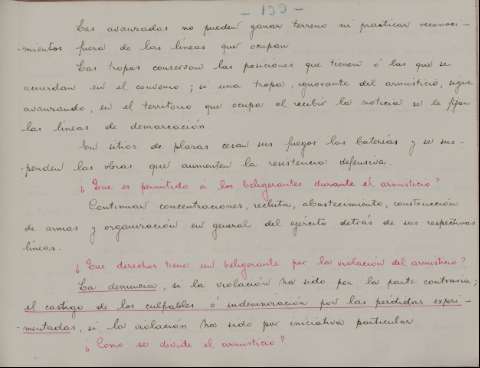 - 199 -
Las avanzadas no pueden ganar terreno ni practicar reconoci-
-mientos fuera de las líneas que ocupan
Las tropas conservan las posiciones que tienen ó las que se
acuerdan en el convenio; si una tropa, ignorante del armisticio, sigue
avanzando, en el territorio que ocupa al recibir la noticia se le fijan
las líneas de demarcación
En sitios de plazas cesan sus fuegos las baterías y se sus-
-penden las obras que aumenten la resistencia defensiva.
¿Que es permitido a los beligerantes durante el armisticio?
Continuar concentraciones, recluta, abastecimiento, construcción
de armas y organización en general del ejército detrás de sus respectivas
líneas.
¿Que derechos tiene un beligerante por la violacion del armisticio?
La denuncia, si la violación ha sido por la parte contraria;
el castigo de los culpables é indemnización por las perdidas experi-
-mentadas, si la violacion ha sido por iniciativa particular
¿Como se divide el armisticio?